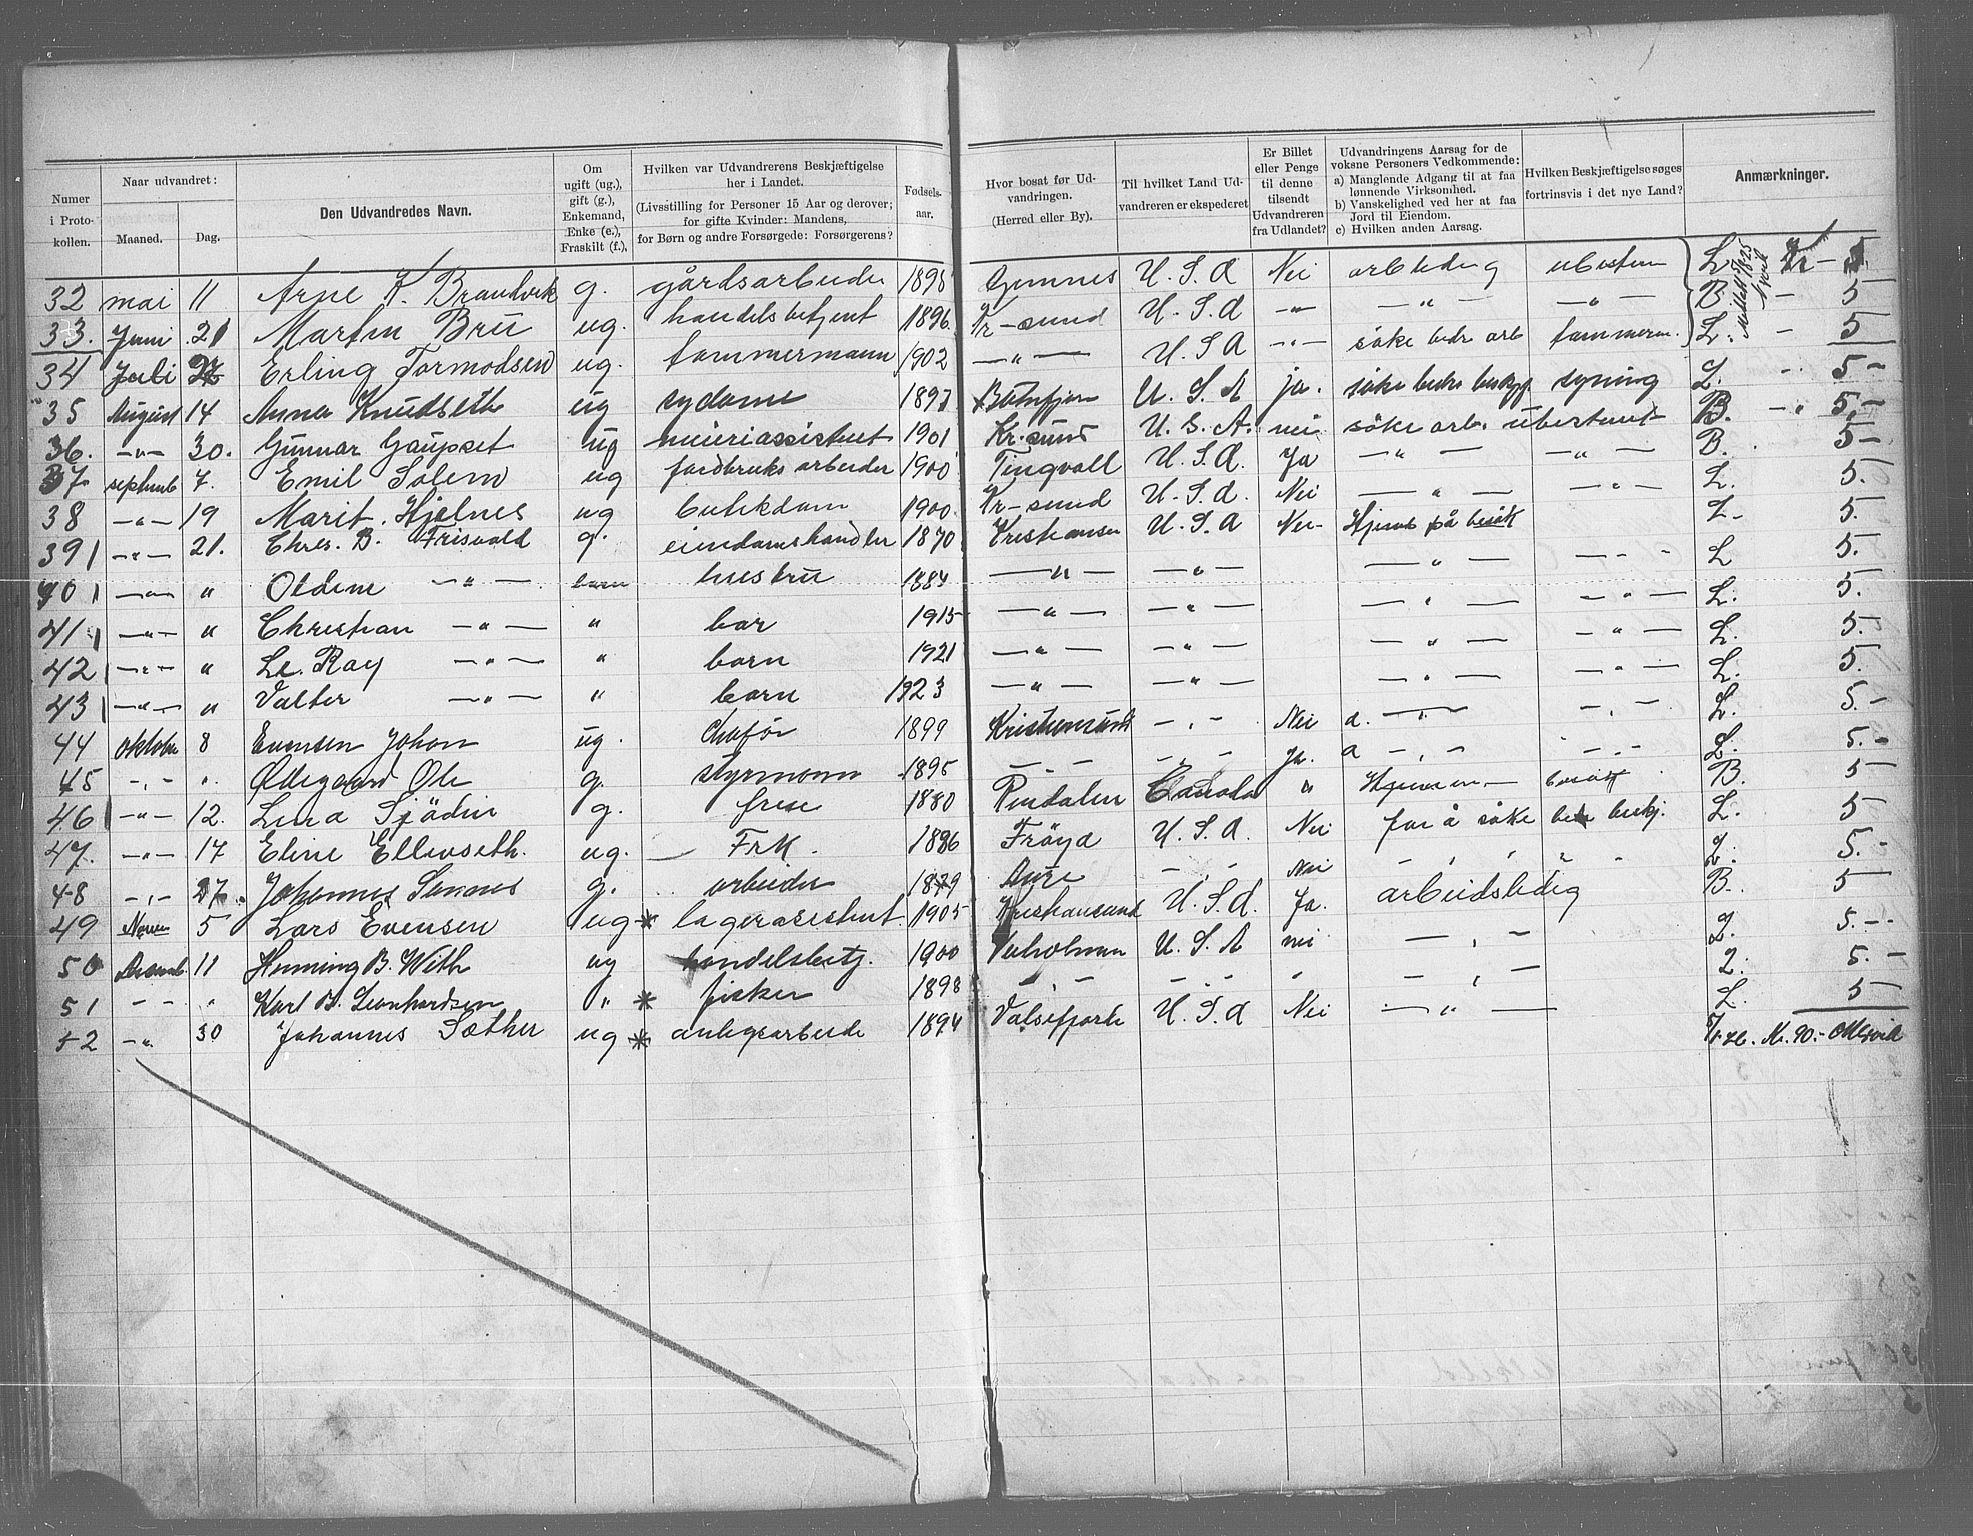 Numer i Protokollen.
Naar udvandret:
Maaned.
Dag.
Den Udvandredes Navn.
Om ugift (ug.), gift (g.), Enkemand, Enke (e.), Fraskilt (f.),
Hvilken var Udvandrerens Beskjæftigelse her i Landet.
(Livsstilling for Personer 15 Aar og derover; for gifte Kvinder: Mandens, for Børn og andre Forsørgede: Forsørgerens?
Fødselsaar.
Hvor bosat før Udvandringen.
(Herred eller By).
Til hvilket Land Udvandreren er ekspederet
Er Billet eller Penge til denne tilsendt Udvandreren fra Udlandet?
Udvandringens Aarsag for de voksne Personers Vedkommende:
a) Manglende Adgang til at faa lønnende Virksomhed.
b) Vanskelighed ved her at faa Jord til Eiendom.
c) Hvilken anden Aarsag.
Hvilken Beskjæftigelse søges fortrinsvis i det nye Land?
Anmærkninger.
32 mai 11 Arne K. Brandvik g. gårdsarbeider 1895 Gjemnes U.S.A Nei arbledig ubestem L. Kr – 5
33. Juni 21 Martin Bru ug. handelsbetjent 1896. Kr-sund U.S.A —"— B. – 5
34 Juli 27 Erling Tormodsen ug. tømmermann 1902 —"— U.S.A —"— søke bedr arb tømmerm. L. – 5
35 August 14 Anna Knudseth ug sydame 1897 Batnfjor U.S.A ja. søke bedre beskjef syning L. 5-
36. —"— 30. Gunnar Gaupset ug meieriassistent 1901 Kr.sund U.S.A. nei søke arb. ubestemt B. 5.-
37 septemb 7. Emil Solem ug jordbruks arbeider 1900 Tingvoll U.S.A. Ja —"— —"— B. 5-
38 —"— 19 Marit Hjelnes ug butikdam 1900. Kr-sund U.S.A. Nei —"— —"— L. 5.
39 —"— 21. Chres. B. Frisvold g. eiendomshandler 1870 Kristiansun U.S.A Nei- Hjemme på besøk L. 5.
40 —"— " Oldine —"— barn hustru 1884 —"— —"— —"— —"— L 5.
41 —"— " Christian —"— " bar 1915 —"— —"— —"— —"— L. 5.
42 —"— " Le. Ray —"— " barn 1921 —"— —"— —"— —"— L. 5.-
43 —"— " Valter —"— " barn 1923 —"— —"— —"— —"— L. 5.
44 oktober 8 Evensen Johan ug. Chafør 1899 Kristiansund —"— Nei a. —"— —"— L. 5.-
45 —"— " Ødegaard Ole g. styrmann 1895 —"— —"— ja. a —"— —"— L. 5.-
46 —"— 12. Lina Sjødin g. frue 1880 Rindalen Canada " Hjemme besøk B. 5-
47. —"— 17 Eline Ellevseth. ug. Frk. 1886 Frøya U.S.A. Nei for å søke bedr beskj. L. 5
48 —"— 27. Johannes Sannes g. arbeider 1879 Aure —"— Nei —"— L. 5.-
49 Novem 5 Lars Evensen ug * lagerasistent 1905 Kristiansund U.S.A. Ja. arbeidsledig B. 5
50 11 Henning B. With ug handelsbetj. 1900 Veiholman U.S.A nei —"— L. 5.--
51 —"— " Karl B. Leonhardsen " * fisker 1898 —"— —"— " —"— L. 5.-
52 —"— 30 Johannes Sæther ug * anlegsarbeide 1894 Valsøfjorde U.S.A Nei —"— L. 5-